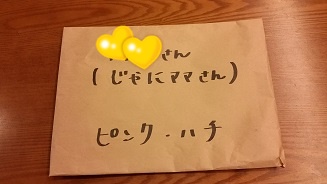 さん
(じゃにママさん)
ピンク・ハチ